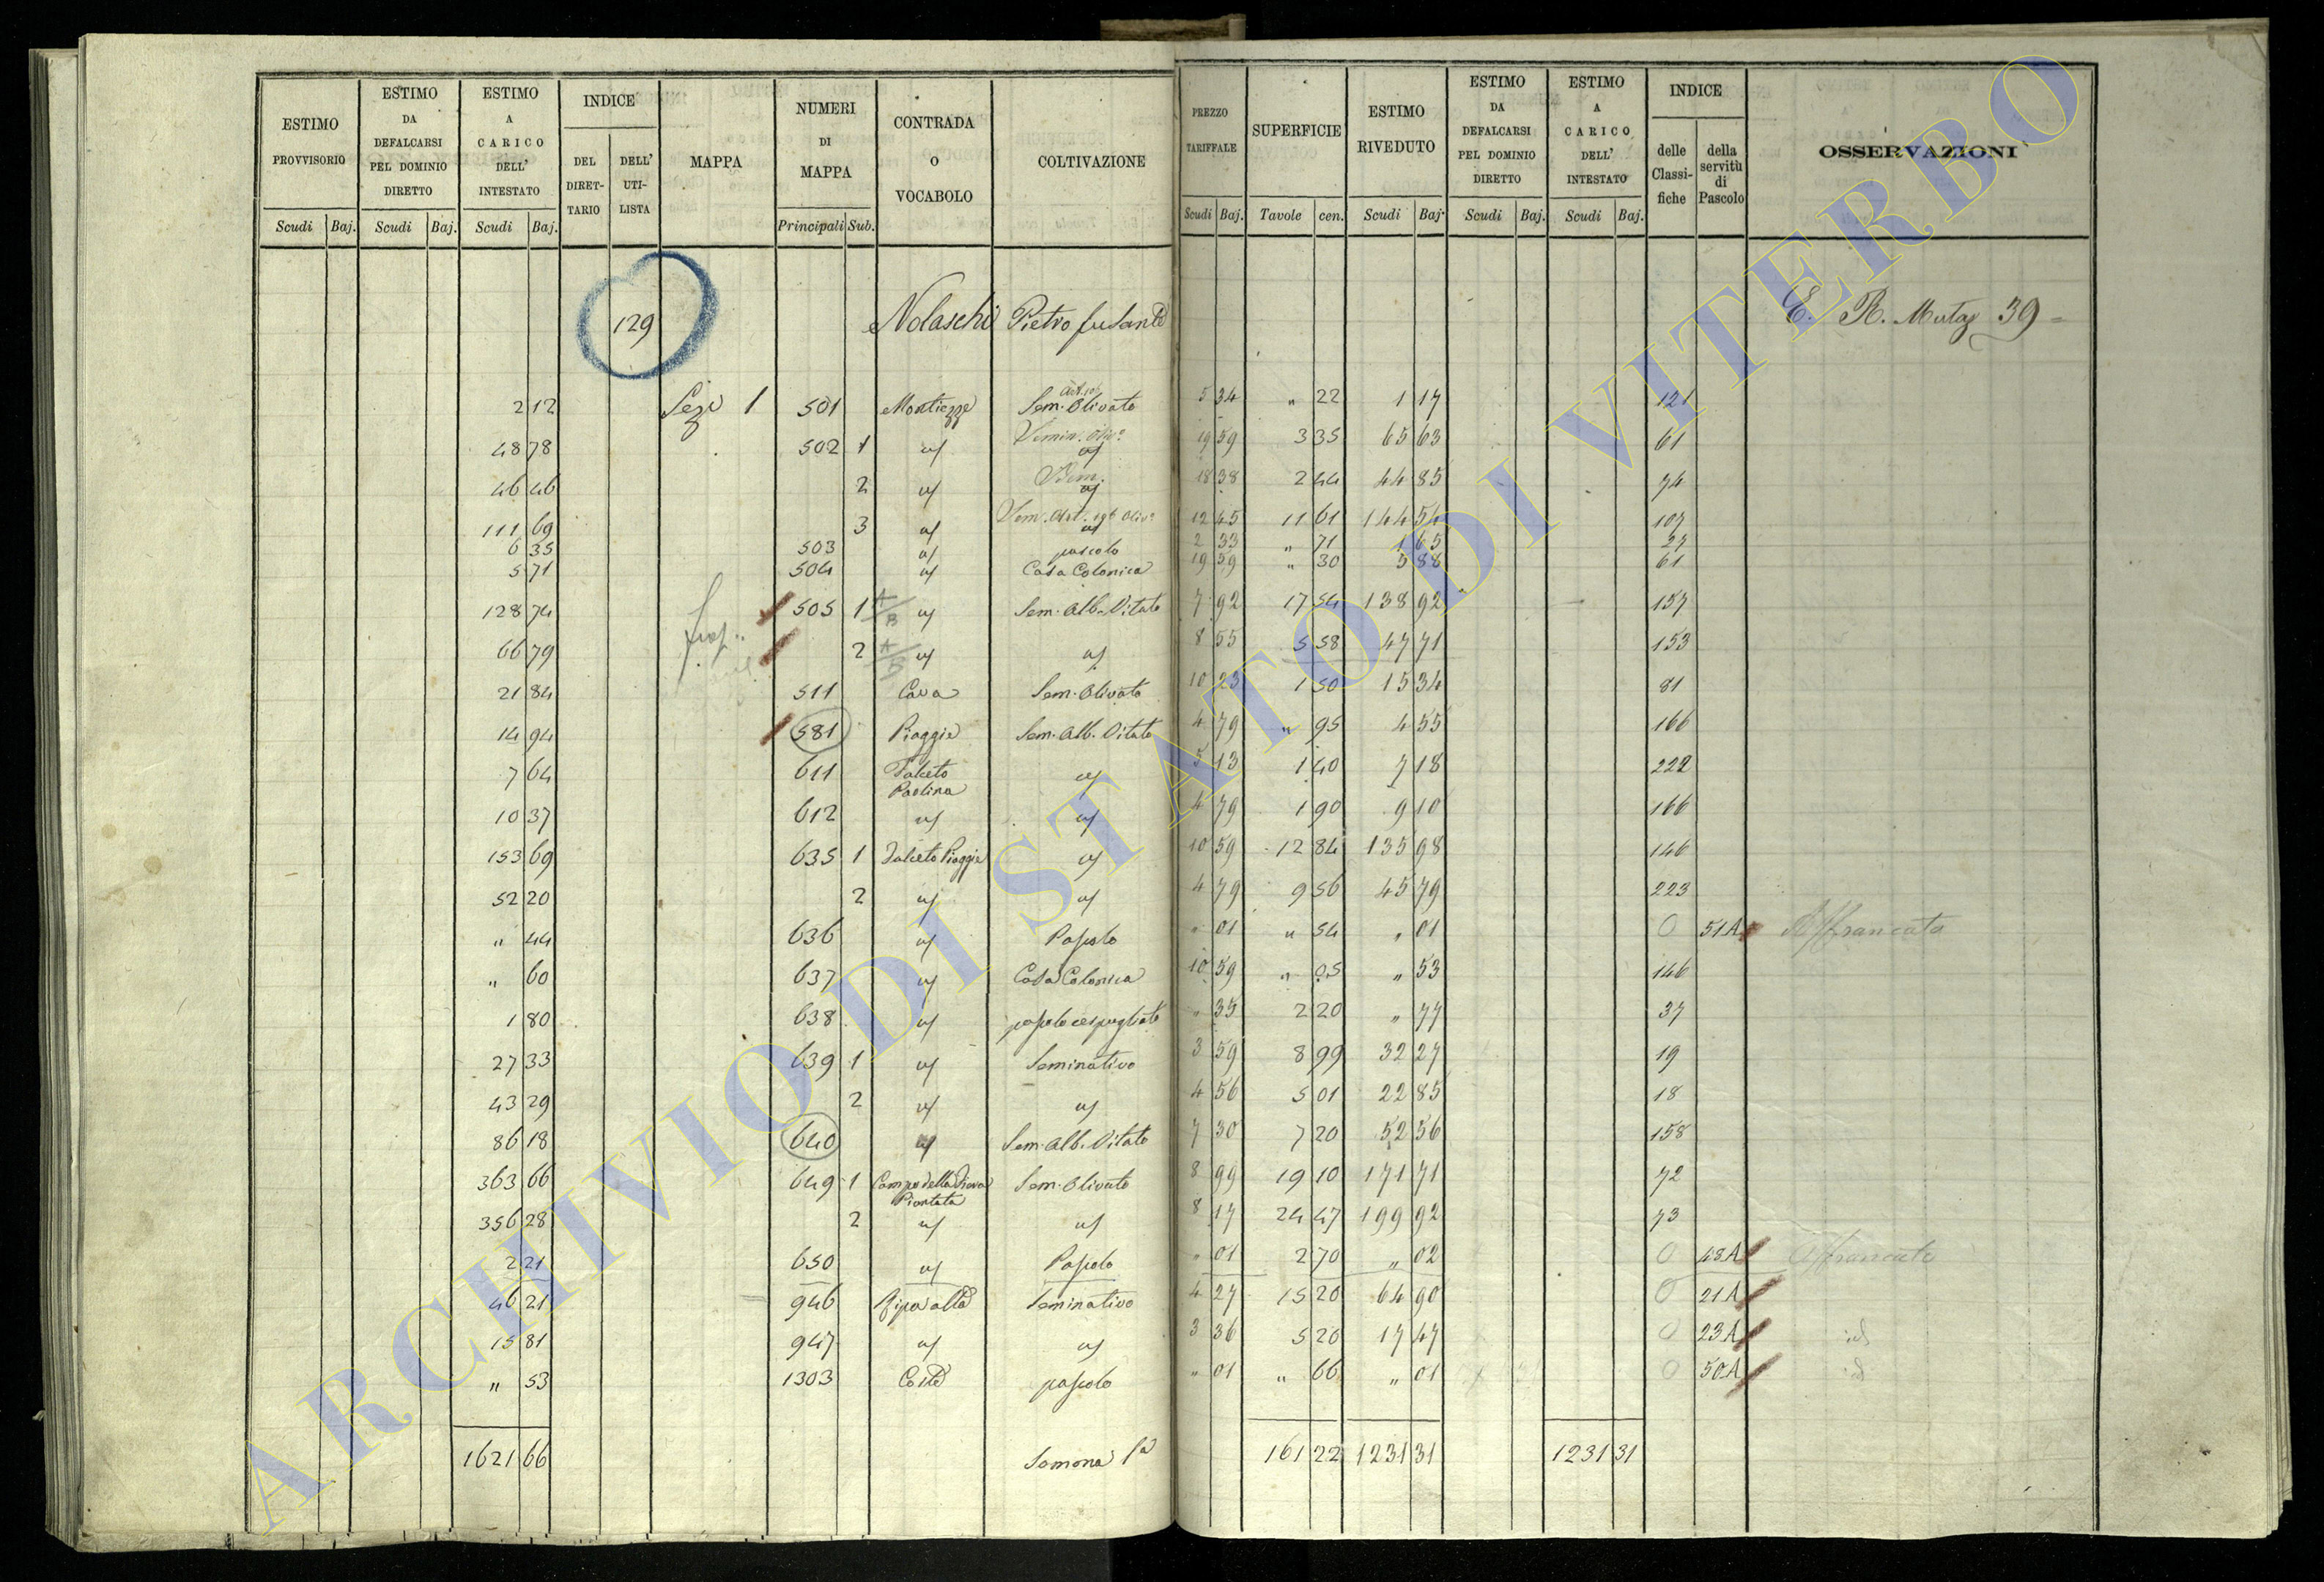 ESTIMO PROVVISORIO | ESTIMO DA DEFALCARSI PEL DOMINIO DIRETTO | ESTIMO A CARICO DELL' INTESTATO | INDICE | MAPPA | NUMERI DI MAPPA | CONTRADA O VOCABOLO | COLTIVAZIONE | PREZZO TARIFFALE | SUPERFICIE | ESTIMO RIVEDUTO | ESTIMO DA DEFALCARSI PEL DOMINIO DIRETTO | ESTIMO A CARICO DELL' INTESTATO | INDICE | OSSERVAZIONI
DEL DIRET- TARIO | DELL' UTI- LISTA | delle Classi- fiche | della servitù di Pascolo
Scudi | Baj. | Scudi | Baj. | Scudi | Baj. | Principali | Sub. | Scudi | Baj. | Tavole | cen. | Scudi | Baj. | Scudi | Baj. | Scudi | Baj.
129 Nolaschi Pietro E. R. Mutaz 39
2 12 Seze 1 501 Sem. Olivato 5 34 " 22 1 17 121
48 78 502 1 19 59 3 35 65 63 61
46 46 2 18 38 2 44 44 85 74
111 69 3 12 45 11 61 144 54 107
6 35 503 pascolo 2 33 " 71 1 65 27
5 71 504 Casa Colonica 19 59 " 30 5 88 61
128 74 505 1 A/B Sem. Alb. Vitato 7 92 17 54 138 92 157
66 79 2 A/B 8 55 5 58 47 71 153
21 84 511 Cava Sem. Olivato 10 23 1 50 15 34 81
14 94 581 Piaggie Sem. Alb. Vitato 4 79 " 95 4 55 166
7 64 611 Falceto Paolina 5 13 1 40 7 18 222
10 37 612 4 79 1 90 9 10 166
153 69 635 1 Falceto Piaggie 10 59 12 84 135 98 146
52 20 2 4 79 9 56 45 79 223
" 44 636 Pascolo " 01 " 54 " 01 0 51A Affrancata
" 60 637 Casa Colonica 10 59 " 05 " 53 146
1 80 638 pascolo cespugliato " 35 2 20 " 77 37
27 33 639 1 Seminativo 3 59 8 99 32 27 19
43 29 2 4 56 5 01 22 85 18
86 18 640 Sem. Alb. Vitato 7 30 7 20 52 56 158
363 66 649 1 Campo della Piantata Sem. Olivato 8 99 19 10 171 71 72
356 28 2 8 17 24 47 199 92 73
2 21 650 Pascolo " 01 2 70 " 02 0 48A Affrancato
46 21 946 Ripa alta Seminativo 4 27 15 20 64 90 0 21A
15 81 947 3 36 5 20 17 47 0 23A id
" 53 1303 Coste pascolo " 01 " 66 " 01 0 50A id
1621 66 Somma 161 22 1231 31 1231 31
ARCHIVIO DI STATO DI VITERBO